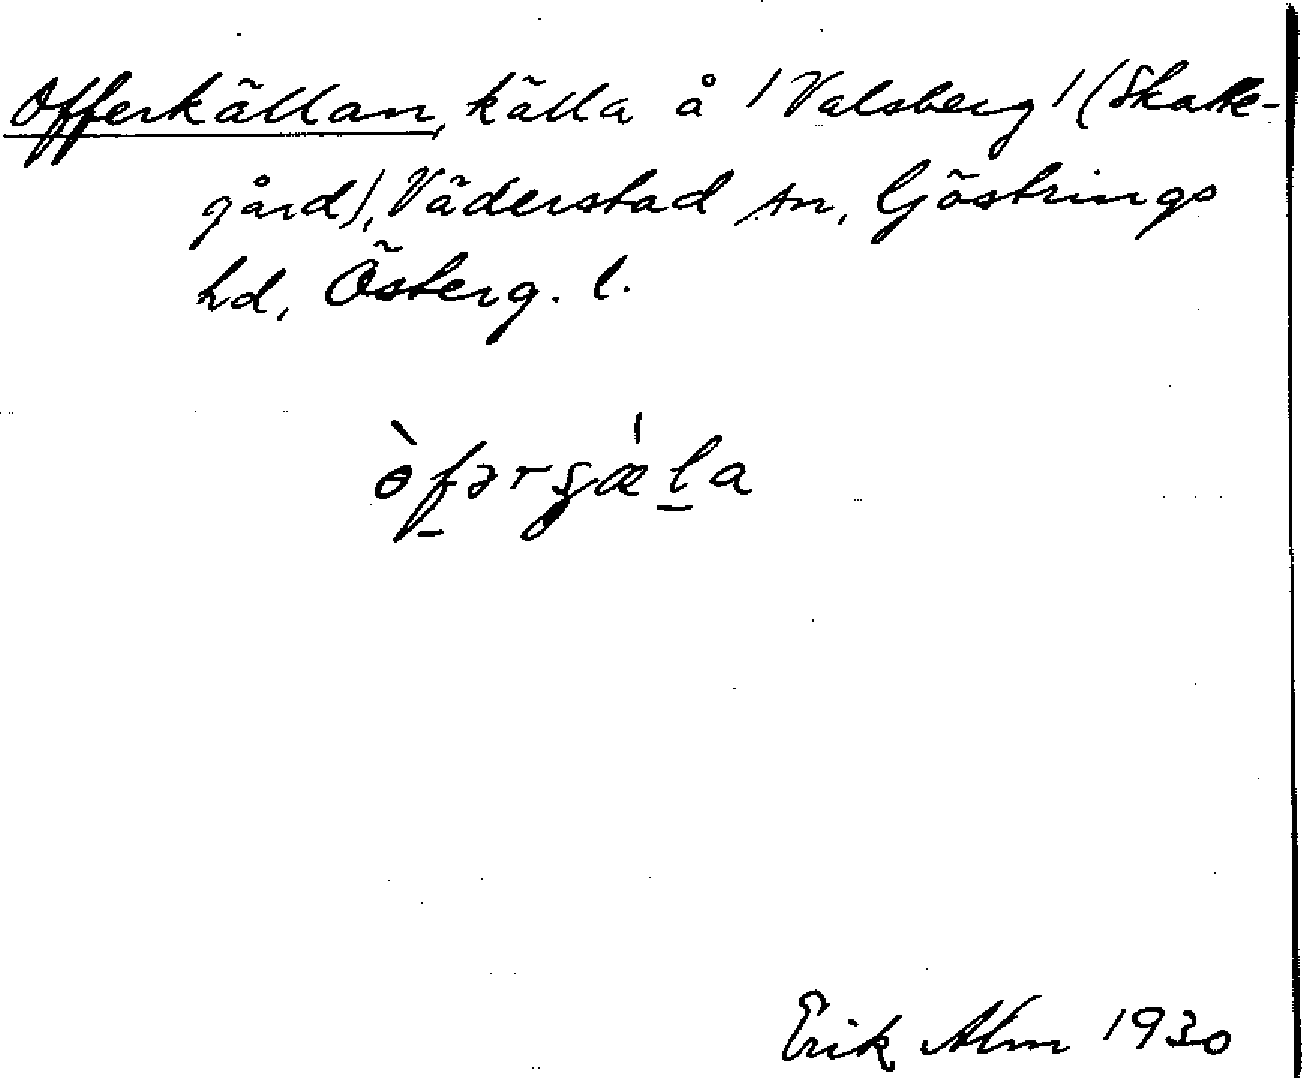 Offerkällan, källa å /Valsberg/ (Skatte-
gård), Väderstad sn, Göstrings
hd, Österg. l.
ɵ̀fərʂæ̍la
Erik Alm 1930